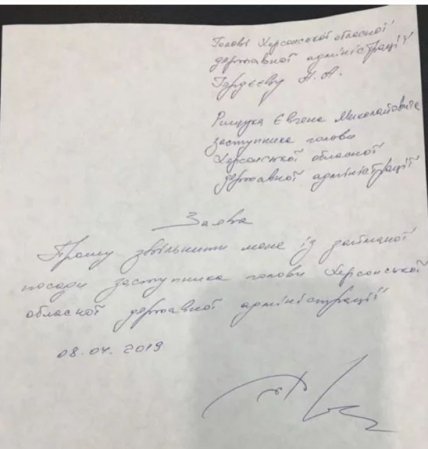 Голові Херсонської обласної
державної адміністрації
Гордєєву А.А.
Рищука Євгена Миколайовича
заступника голови
Херсонської обласної
державної адміністрації
Заява
Прошу звільнити мене із займаної
посади заступника голови Херсонської
обласної державної адміністрації
08.04.2019